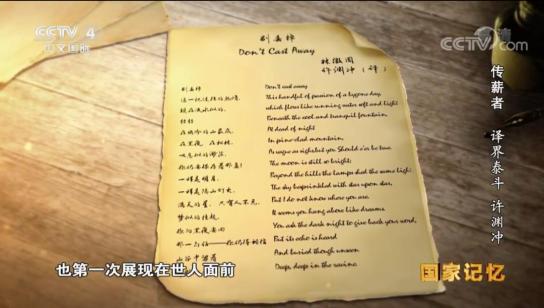 CCTV 4
中文国际
CCTV.com
别丢掉
Don't Cast Away
林徽因
许渊冲（译）
别丢掉
这一把过往的热情,
现在流水似的,
轻轻
在幽冷的山泉底,
在黑夜, 在松林,
叹息似的渺茫,
你仍要保存着那真!
一样是明月,
一样是隔山灯火,
满天的星, 只有人不见,
梦似的挂起,
你向黑夜要回
那一句话——你仍得相信
山谷中留着
Don't cast away
This handful of passion of a bygone day,
which flows like running water soft and light
Beneath the cool and tranquil fountain,
At dead of night
In pine-clad mountain,
As vague as sighs, but you Should e'er be true.
The moon is still so bright;
Beyond the hills the lamp sheds the same light.
The sky besprinkled with star upon star,
But I do not know where you are.
It seems you hang above like dreams.
You ask the dark night to give back your word,
But its echo is heard
And buried though unseen
Deep, deep in the ravine.
传薪者 译界泰斗 许渊冲
也第一次展现在世人面前
国家记忆